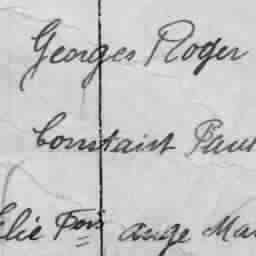 Georges Roger
Constant Paul
Elie Fois ange Mar